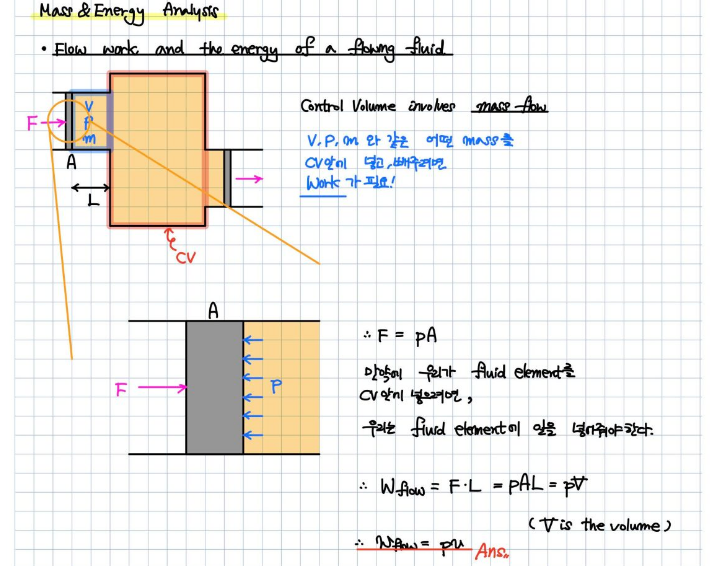 Mass & Energy Analysis
• Flow work and the energy of a flowing fluid
Control Volume involves mass flow
V, P, m 와 같은 어떤 mass를
CV안에 넣고, 빼주려면
Work가 필요!
F
V
P
m
A
L
CV
A
F
P
∴ F = pA
만약에 우리가 fluid element를
CV안에 넣으려면,
우리는 fluid element에 일을 넣어줘야한다.
∴ Wflow = F·L = pAL = pV
(V is the volume)
∴ Wflow = pv Ans.